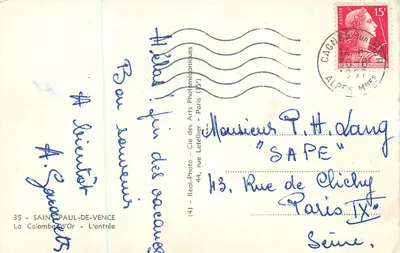 Hélas! fin des vacances
Bon souvenir
A bientôt
35 - SAINT-PAUL-DE-VENCE
La Colombe d'Or - L'entrée
(4) - Real-Photo - Cie des Arts Photomécaniques
44, rue Letellier - Paris (15e)
15F
CAGNES-SUR-MER
ALPES Mmes
Monsieur P. H. Lang
"SAPE"
43, Rue de Clichy
Paris IXe
Seine.